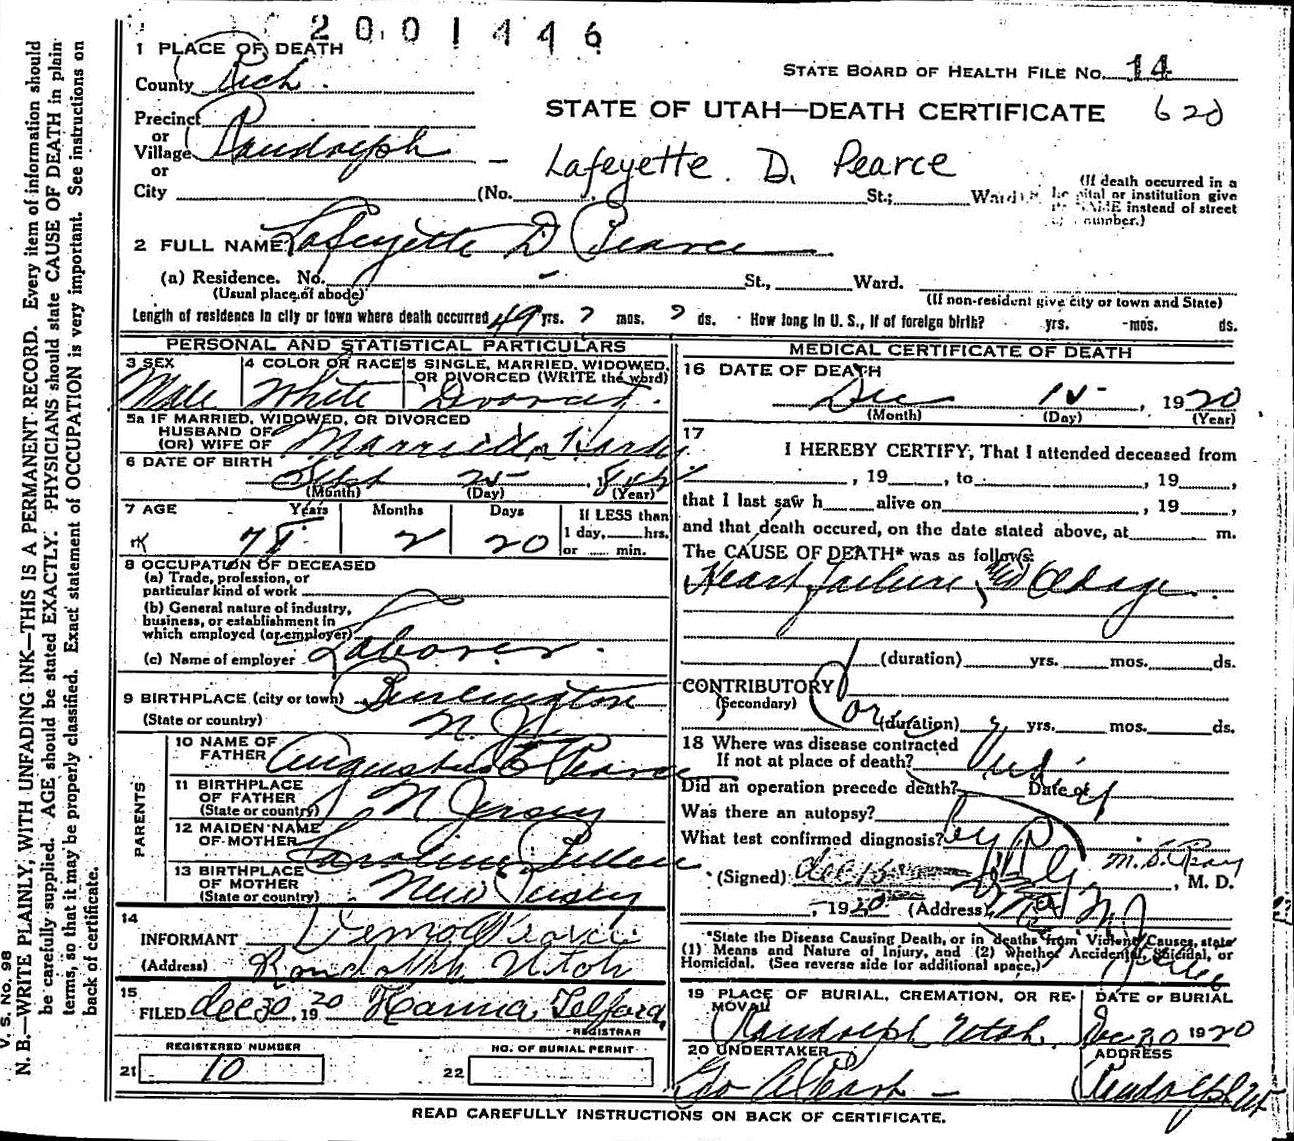 2001446
1 PLACE OF DEATH
County Rich.
STATE BOARD OF HEALTH FILE No. 14
STATE OF UTAH—DEATH CERTIFICATE 620
Precinct
or
Village Randolph
or
City (No. St.; Ward)
Lafeyette D. Pearce
(If death occurred in a
pital or institution give
instead of street
number.)
2 FULL NAME Lafeyette D Pearce
(a) Residence. No. St., Ward.
(Usual place of abode) (If non-resident give city or town and State)
Length of residence in city or town where death occurred 49 yrs. ? mos. ? ds. How long in U. S., if of foreign birth? yrs. mos. ds.
PERSONAL AND STATISTICAL PARTICULARS
3 SEX 4 COLOR OR RACE 5 SINGLE, MARRIED, WIDOWED,
OR DIVORCED (WRITE the word)
Male White Divorced.
5a IF MARRIED, WIDOWED, OR DIVORCED
HUSBAND OF
(OR) WIFE OF
6 DATE OF BIRTH
Sept 25 184
(Month) (Day) (Year)
7 AGE Years Months Days If LESS than
1 day, hrs.
or min.
78 2 20
8 OCCUPATION OF DECEASED
(a) Trade, profession, or
particular kind of work
(b) General nature of industry,
business, or establishment in
which employed (or employer)
(c) Name of employer
Laborer.
9 BIRTHPLACE (city or town) Burlington
(State or country) N. J.
PARENTS
10 NAME OF
FATHER Augustus E Pearce
11 BIRTHPLACE
OF FATHER
(State or country) N Jersey
12 MAIDEN NAME
OF MOTHER Caroline
13 BIRTHPLACE
OF MOTHER
(State or country) New Jersey
14
INFORMANT Pearce
(Address) Randolph Utah
15
FILED Dec 30, 1920 Hanna Telford
REGISTRAR
REGISTERED NUMBER
21 10
NO. OF BURIAL PERMIT
22
MEDICAL CERTIFICATE OF DEATH
16 DATE OF DEATH
Dec 15, 1920
(Month) (Day) (Year)
17
I HEREBY CERTIFY, That I attended deceased from
, 19 , to , 19 ,
that I last saw h alive on , 19 ,
and that death occured, on the date stated above, at m.
The CAUSE OF DEATH* was as follows:
Heart failure, Old age.
(duration) yrs. mos. ds.
CONTRIBUTORY
(Secondary)
(duration) yrs. mos. ds.
18 Where was disease contracted
If not at place of death?
Did an operation precede death? Date of
Was there an autopsy?
What test confirmed diagnosis?
(Signed) Dec 15 , M. D.
, 1920 (Address)
*State the Disease Causing Death, or in deaths from Violent Causes, state
(1) Means and Nature of Injury, and (2) whether Accidental, Suicidal, or
Homicidal. (See reverse side for additional space.)
19 PLACE OF BURIAL, CREMATION, OR RE-
MOVAL
Randolph Utah.
DATE OF BURIAL
Dec 20 1920
20 UNDERTAKER
Geo A
ADDRESS
Randolph Ut
READ CAREFULLY INSTRUCTIONS ON BACK OF CERTIFICATE.
V. S. No. 98
N. B.—WRITE PLAINLY, WITH UNFADING INK—THIS IS A PERMANENT RECORD. Every item of information should
be carefully supplied. AGE should be stated EXACTLY. PHYSICIANS should state CAUSE OF DEATH in plain
terms, so that it may be properly classified. Exact statement of OCCUPATION is very important. See instructions on
back of certificate.